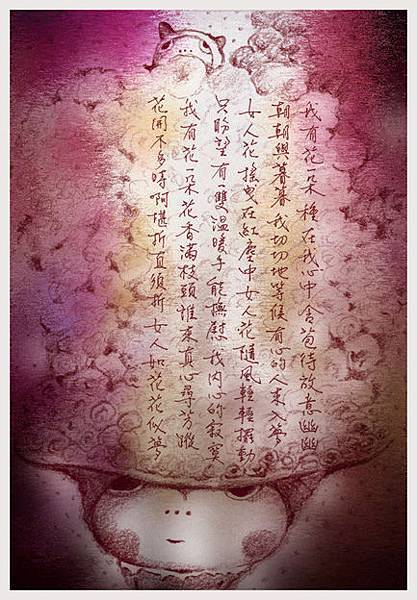 我有花一朵 種在我心中 含苞待放意幽幽
朝朝與暮暮 我切切地等候 有心的人來入夢
女人花搖曳在紅塵中 女人花隨風輕輕擺動
只盼望有一雙溫暖手 能撫慰 我內心的寂寞
我有花一朵 花香滿枝頭 誰來真心尋芳蹤
花開不多時啊堪折直須折 女人如花花似夢